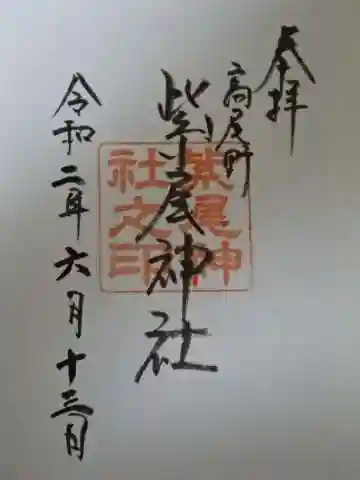 奉拝
高尾野町
紫尾神社
紫尾神
社之印
令和二年六月十三日